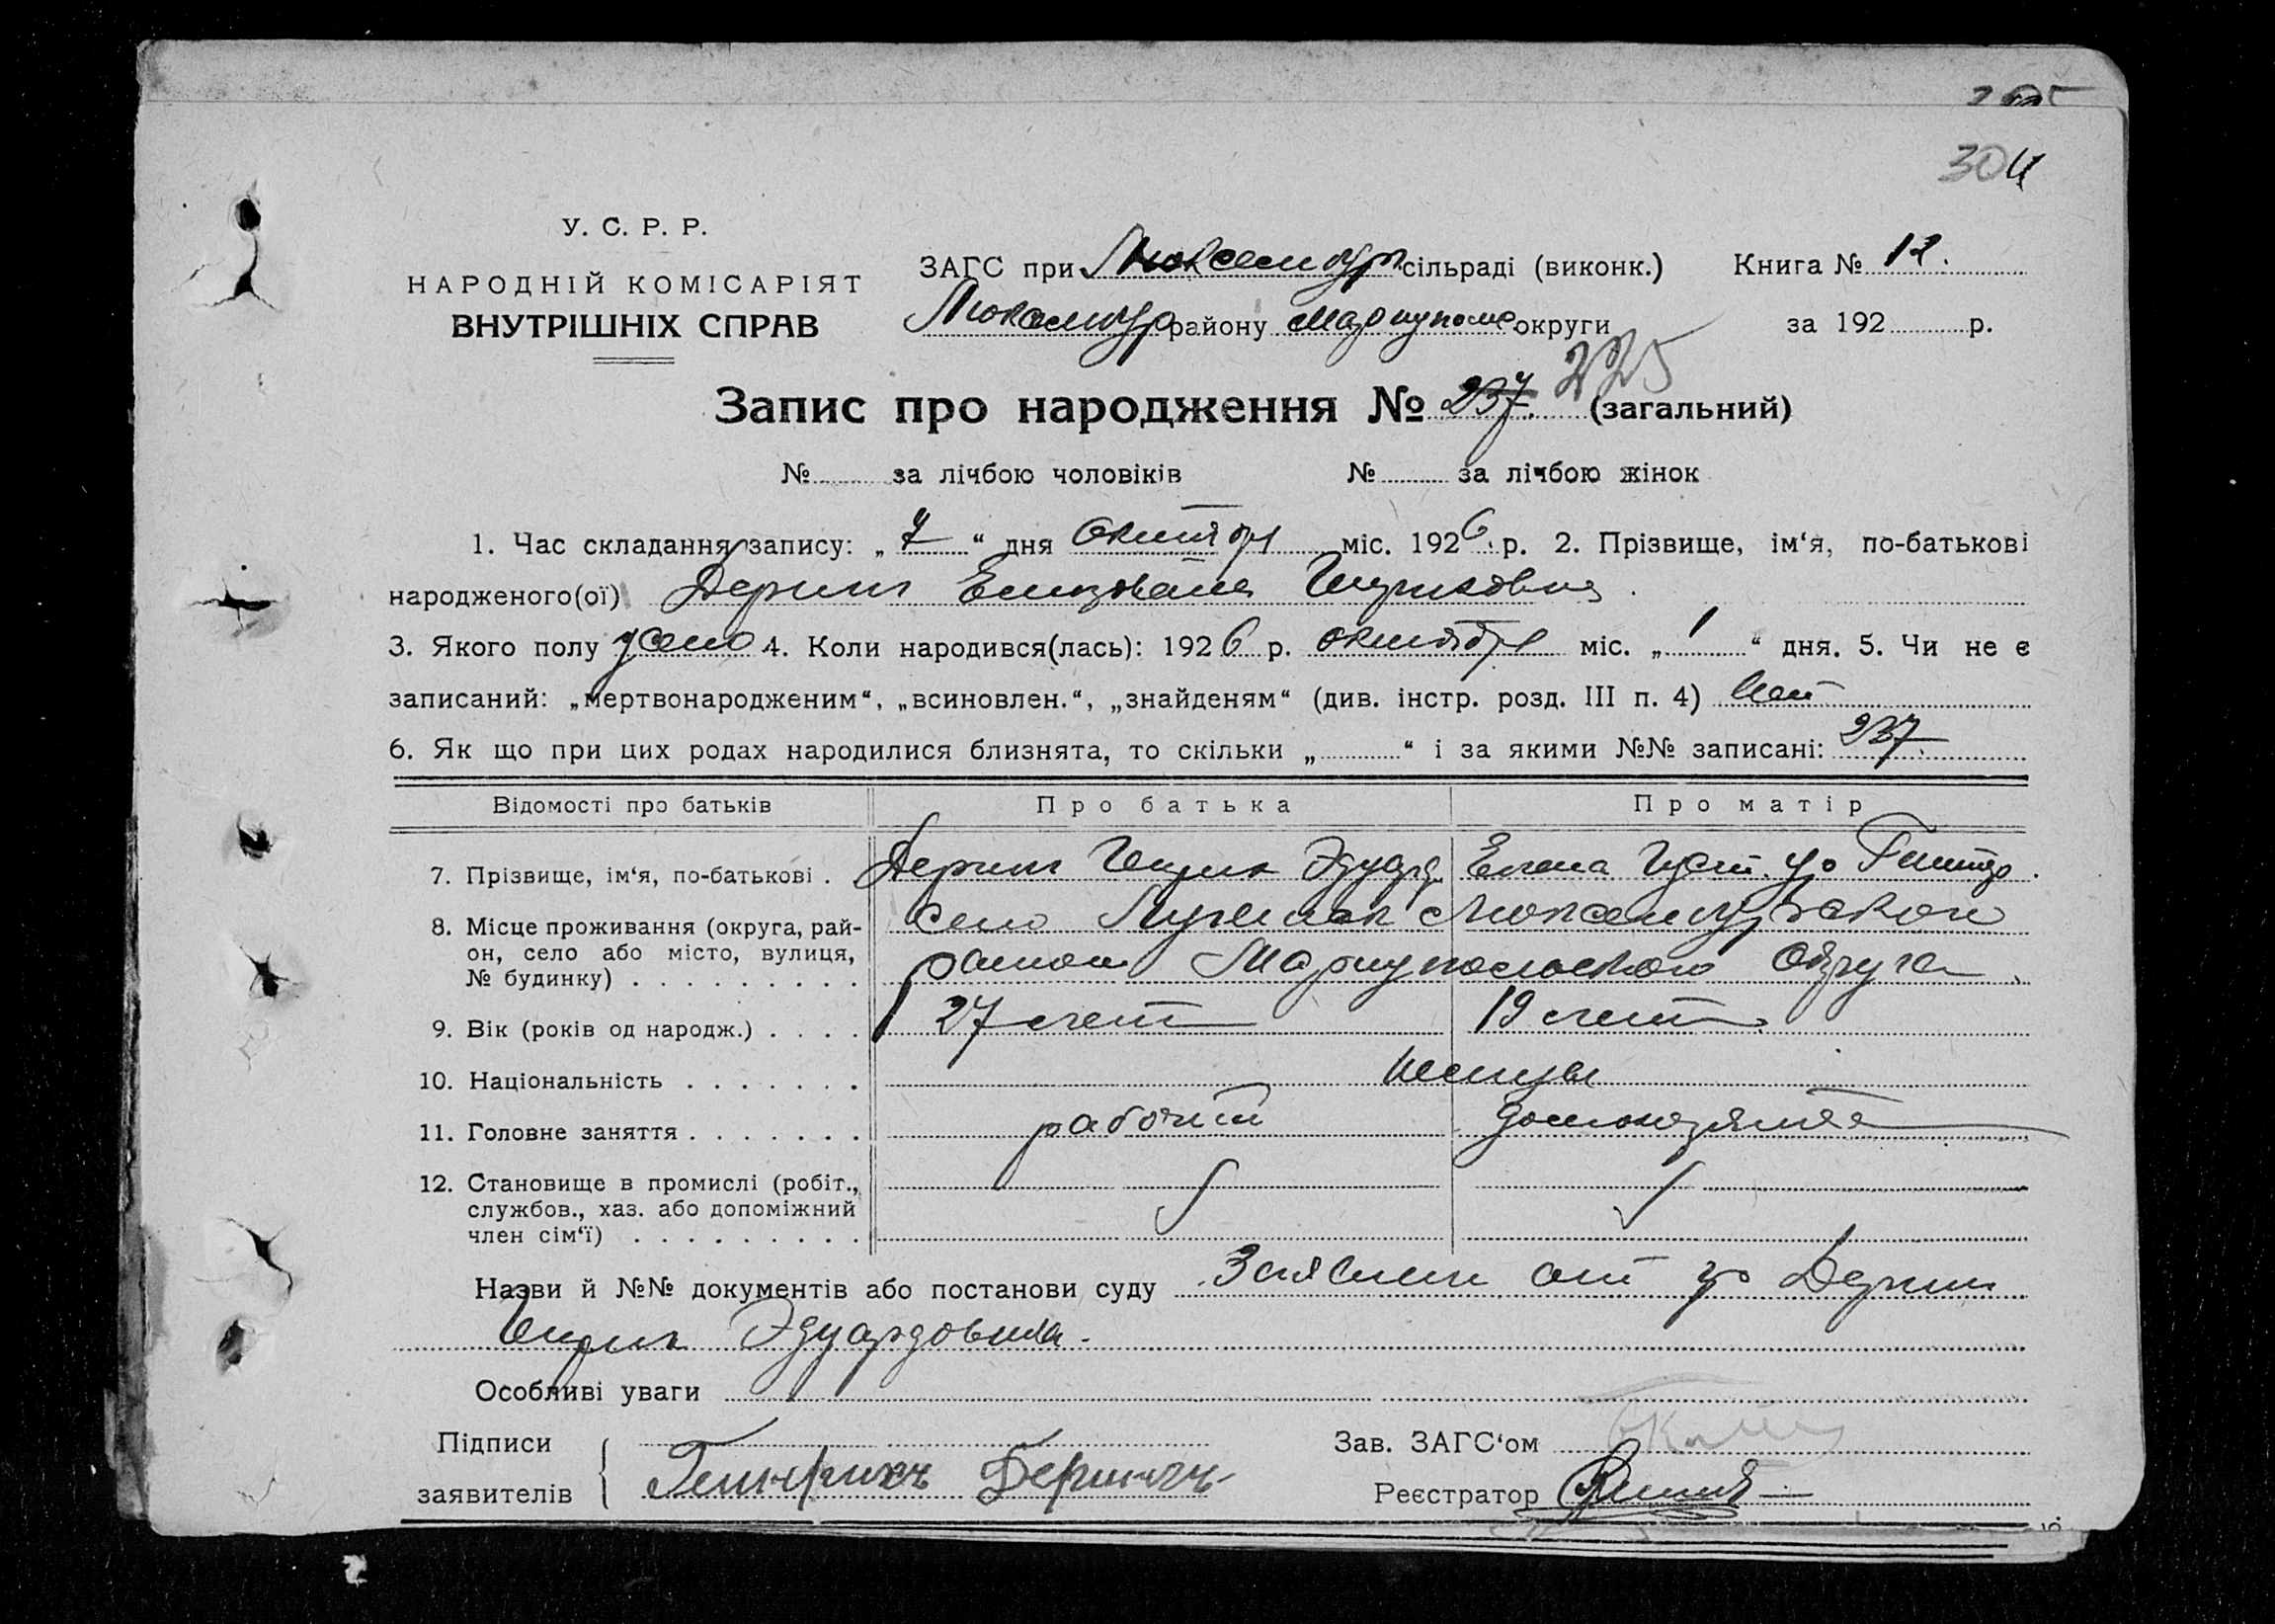 304
У. С. Р. Р.
НАРОДНІЙ КОМІСАРІЯТ
ВНУТРІШНІХ СПРАВ
ЗАГС при Люксембург. сільраді (виконк.) Книга № 12.
Люксембург району Мариупольс округи за 192 р.
Запис про народження № 237. 225 (загальний)
№ за лічбою чоловіків № за лічбою жінок
1. Час складання запису: „ 7 “ дня Октября міс. 1926 р. 2. Прізвище, ім‘я, по-батькові
народженого(ої) Деринг Елизовета
3. Якого полу жено 4. Коли народився(лась): 1926 р. октября міс. „ 1 “ дня. 5. Чи не є
записаний: „мертвонародженим“, „всиновлен.“, „знайденям“ (див. інстр. розд. III п. 4) Нет
6. Як що при цих родах народилися близнята, то скільки „ “ і за якими №№ записані: 237.
Відомості про батьків Про батька Про матір
7. Прізвище, ім‘я, по-батькові . Деринг Эдуард Елена
8. Місце проживання (округа, рай-он, село або місто, вулиця, № будинку) . . . . . . . . . село Люксембургского
район Мариупольского Округа
9. Вік (років од народж.) . . . . 27 лет 19 лет
10. Національність . . . . . . . Немцы
11. Головне заняття . . . . . . . рабочий домохозяйка
12. Становище в промислі (робіт., службов., хаз. або допоміжний член сім‘ї) . . . . . . . . .
Назви й №№ документів або постанови суду Заявлен от гр Деринг
Эдуардовича.
Особливі уваги
Підписи
заявителів Гейнрихъ Дерингъ
Зав. ЗАГС‘ом
Реєстратор